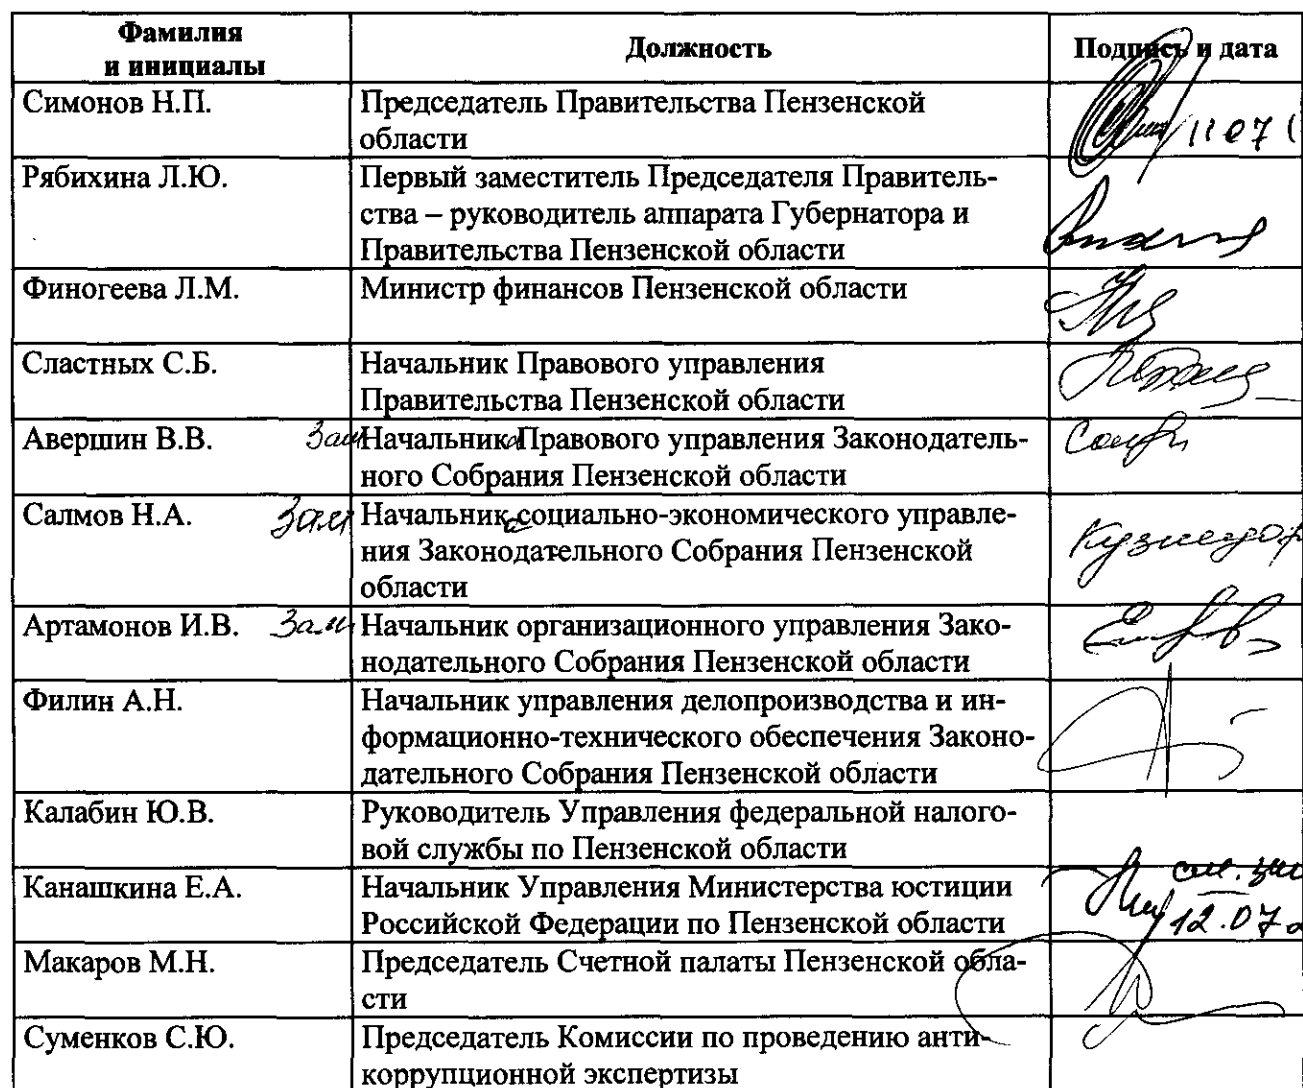 Фамилия
и инициалы
Должность
Подпись и дата
Симонов Н.П.
Председатель Правительства Пензенской
области
11 07
Рябихина Л.Ю.
Первый заместитель Председателя Правитель-
ства – руководитель аппарата Губернатора и
Правительства Пензенской области
Финогеева Л.М.
Министр финансов Пензенской области
Сластных С.Б.
Начальник Правового управления
Правительства Пензенской области
Авершин В.В.
Зам Начальника Правового управления Законодатель-
ного Собрания Пензенской области
Салмов Н.А.
Зам Начальника социально-экономического управле-
ния Законодательного Собрания Пензенской
области
Артамонов И.В.
Зам Начальник организационного управления Зако-
нодательного Собрания Пензенской области
Филин А.Н.
Начальник управления делопроизводства и ин-
формационно-технического обеспечения Законо-
дательного Собрания Пензенской области
Калабин Ю.В.
Руководитель Управления федеральной налого-
вой службы по Пензенской области
Канашкина Е.А.
Начальник Управления Министерства юстиции
Российской Федерации по Пензенской области
12.07
Макаров М.Н.
Председатель Счетной палаты Пензенской обла-
сти
Суменков С.Ю.
Председатель Комиссии по проведению анти-
коррупционной экспертизы